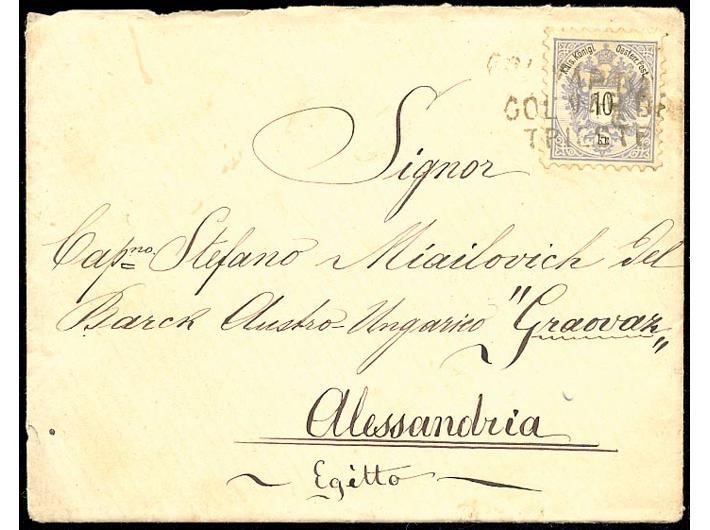 Kais. Königl. Oesterr. Post.
10
COL VAP. DA
TRIESTE
Signor
Cap.no Stefano Miailovich del
Barck Austro-Ungarico "Graovaz"
Alessandria
Egitto